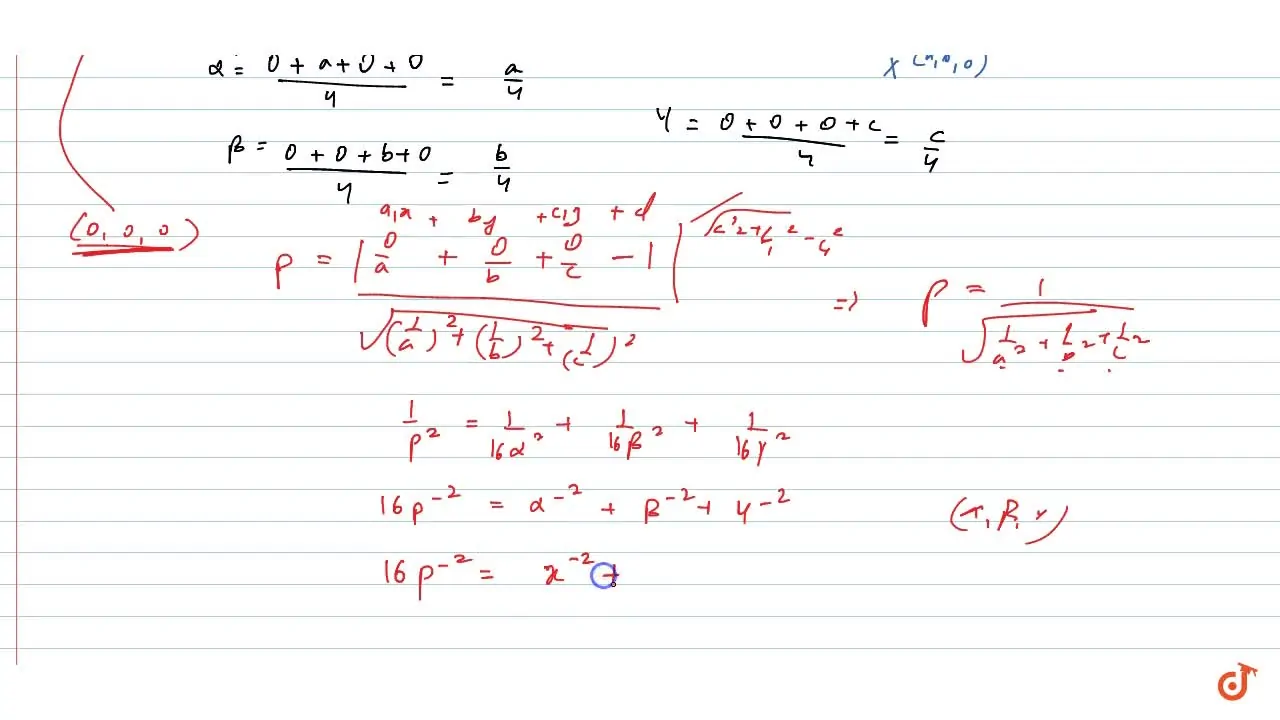 α = (0 + a + 0 + 0)/4 = a/4
X (a, 0, 0)
γ = (0 + 0 + 0 + c)/4 = c/4
β = (0 + 0 + b + 0)/4 = b/4
(0, 0, 0)
a₁x + by + c₁z + d
p = |0/a + 0/b + 0/c − 1| / √((1/a)² + (1/b)² + (1/c)²)
⇒ p = 1/√(1/a² + 1/b² + 1/c²)
1/p² = 1/16α² + 1/16β² + 1/16γ²
16p⁻² = α⁻² + β⁻² + γ⁻²
(α, β, γ)
16p⁻² = x⁻² +